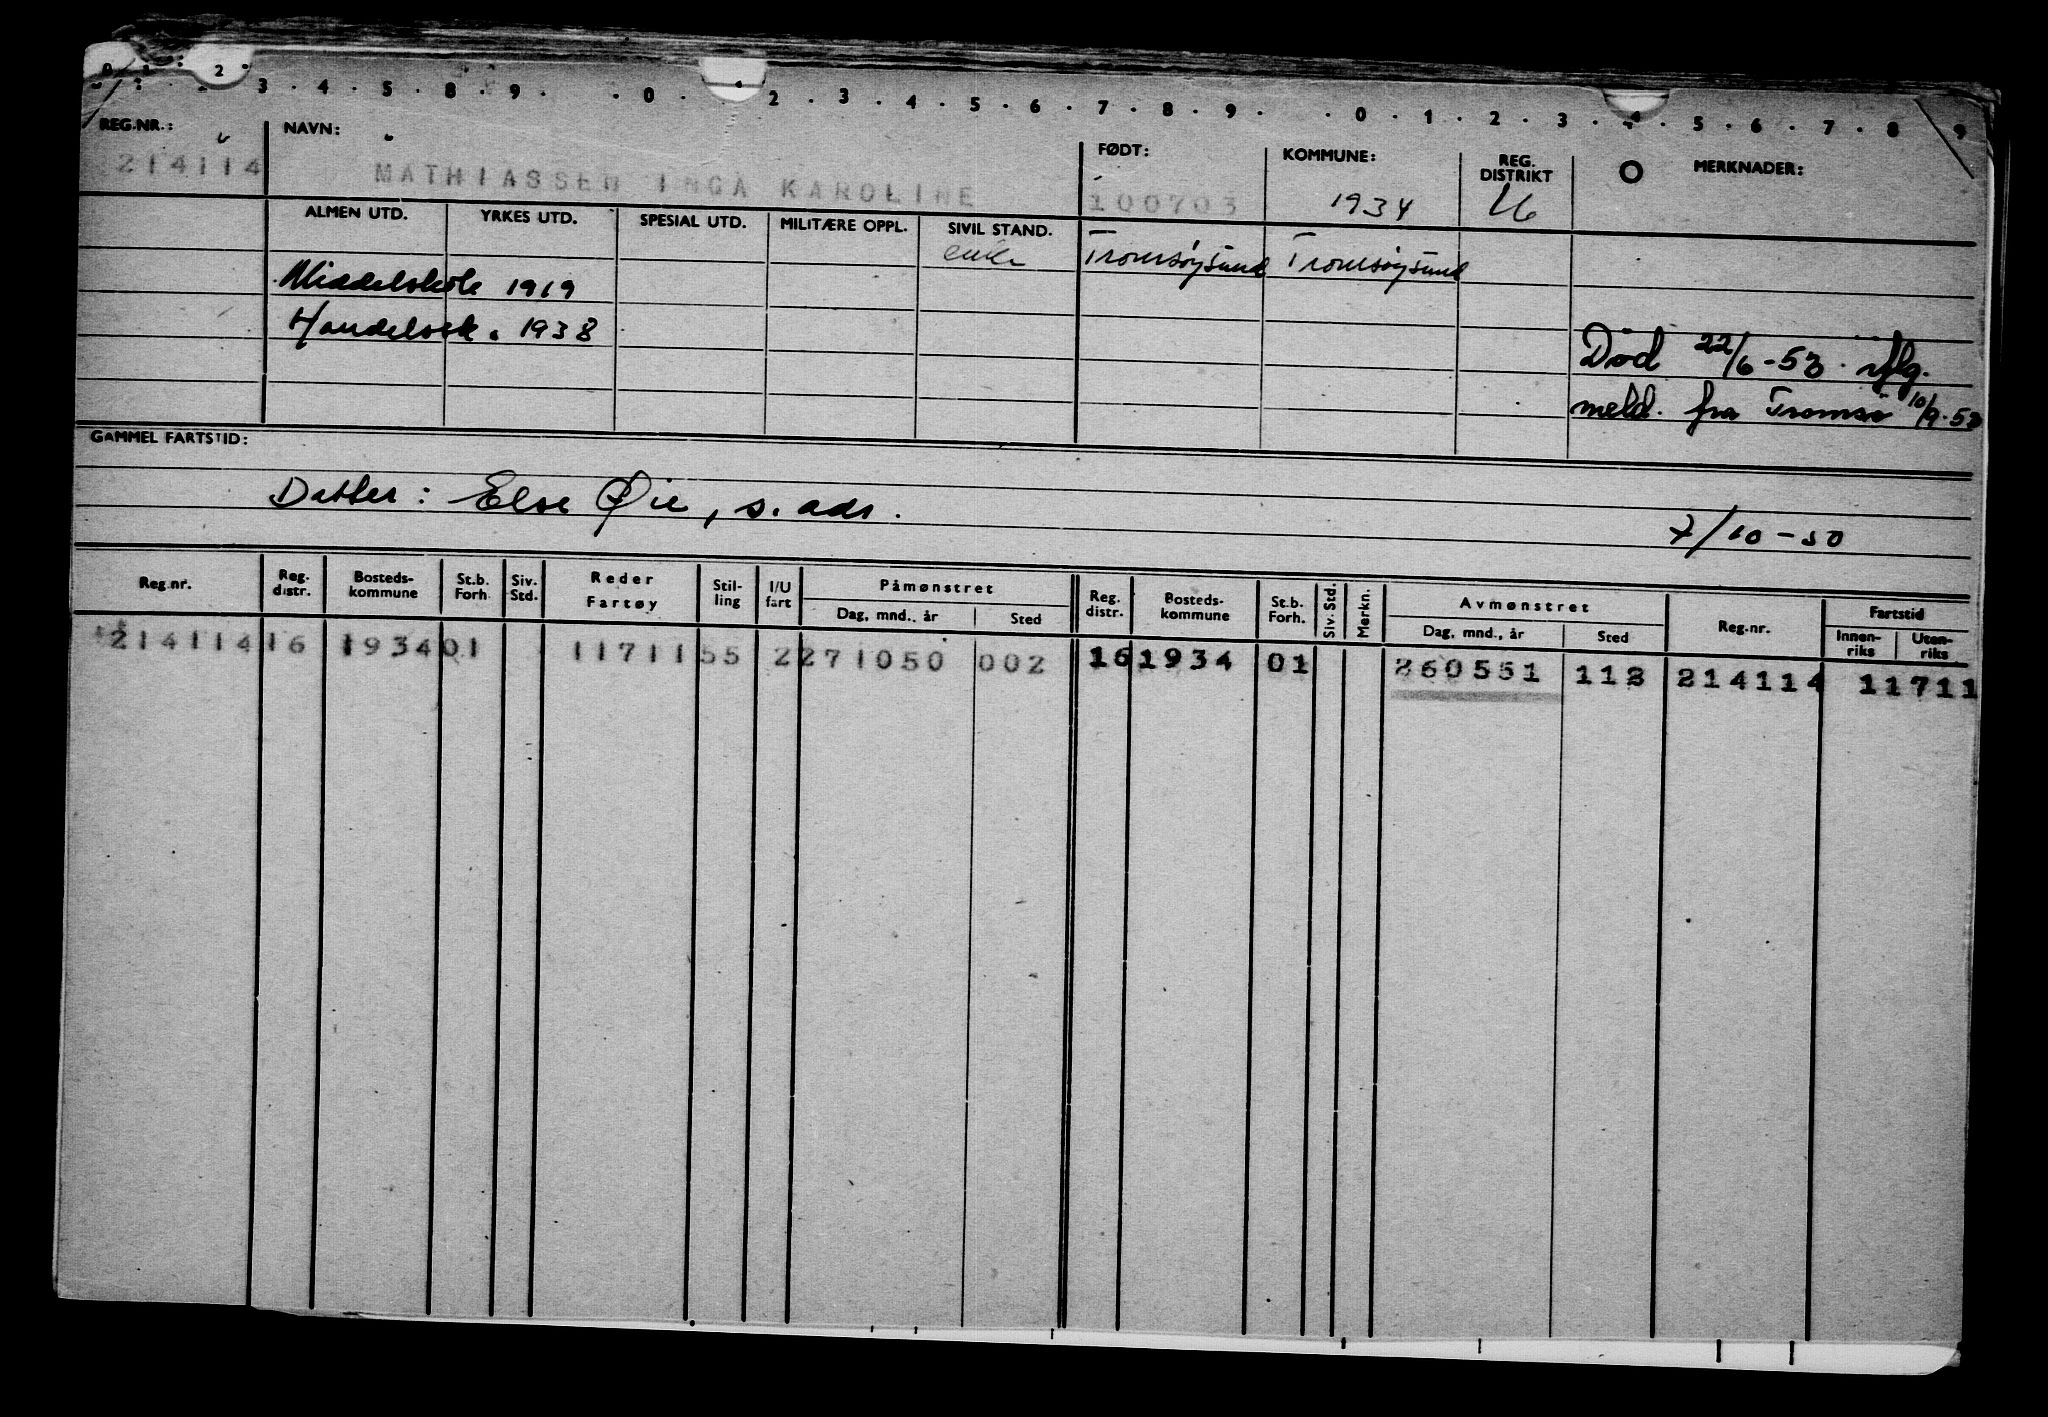 0 1 2 3 · 4 · 5 · 8 · 9 · · 0 · 1 2 · 3 · 4 · 5 · 6 · 7 · 8 · 9 · · 0 · 1 · 2 · 3 · 4 · 5 · 6 · 7 · 8 9
REG.NR.: NAVN: FØDT: KOMMUNE: REG. DISTRIKT MERKNADER:
214114 MATHIASSEN INGA KAROLINE 100703 1934 16
ALMEN UTD. YRKES UTD. SPESIAL UTD. MILITÆRE OPPL. SIVIL STAND.
enke Tromsøysund Tromsøysund
Middelskole 1919
Handelssk. 1938
Død 22/6-53 iflg.
meld. fra Tromsø 10/9-53
GAMMEL FARTSTID:
Datter: Else Øie, s. adr.
7/10-50
Reg.nr. Reg. distr. Bosteds-kommune St.b. Forh. Siv. Std. Reder Fartøy Stil-ling I/U fart Påmønstret Dag, mnd., år Sted Reg. distr. Bosteds-kommune St.b. Forh. Siv. Std. Merkn. Avmønstret Dag, mnd., år Sted Reg.nr. Fartstid Innen-riks Uten-riks
214114 16 1934 01 11711 55 2 271050 002 16 1934 01 260551 112 214114 11711